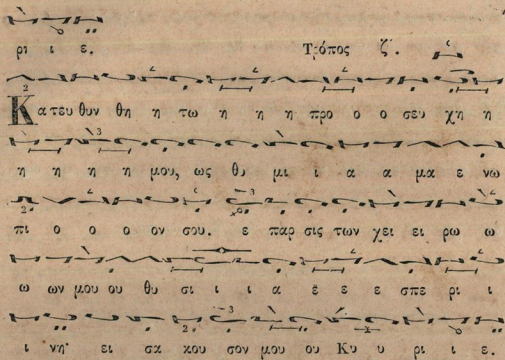 ρι ι ε. Τρόπος ζʹ.
Κα τευ θυν θη η τω η η η προ ο ο σευ χη η
η η η η μου, ως θυ μι ι α α μα ε νω
πι ο ο ο ον σου. ε παρ σις των χει ει ρω ω
ω ων μου ου θυ σι ι ι α ε ε ε σπε ρι ι
ι νη· ει σα κου σον μου ου Κυ υ ρι ι ε.